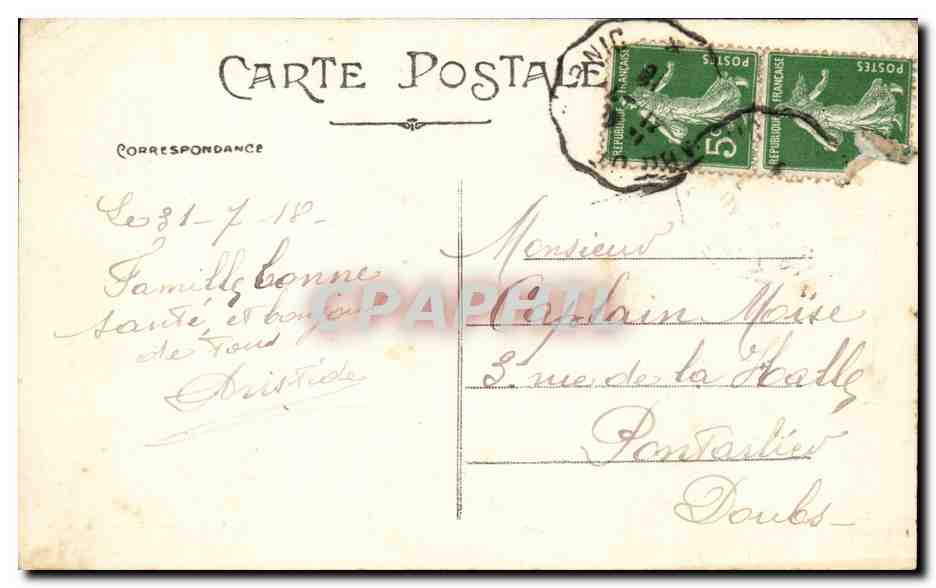 CARTE POSTALE
CORRESPONDANCE
Le 31-7-18-
Famille bonne
santé, et bonjour
de Tous
Aristide
POSTES
REPUBLIQUE FRANÇAISE
5c
POSTES
REPUBLIQUE FRANÇAISE
Monsieur
Captain Moïse
3 rue de la Halle
Pontarlier
Doubs-
CPAPHIL